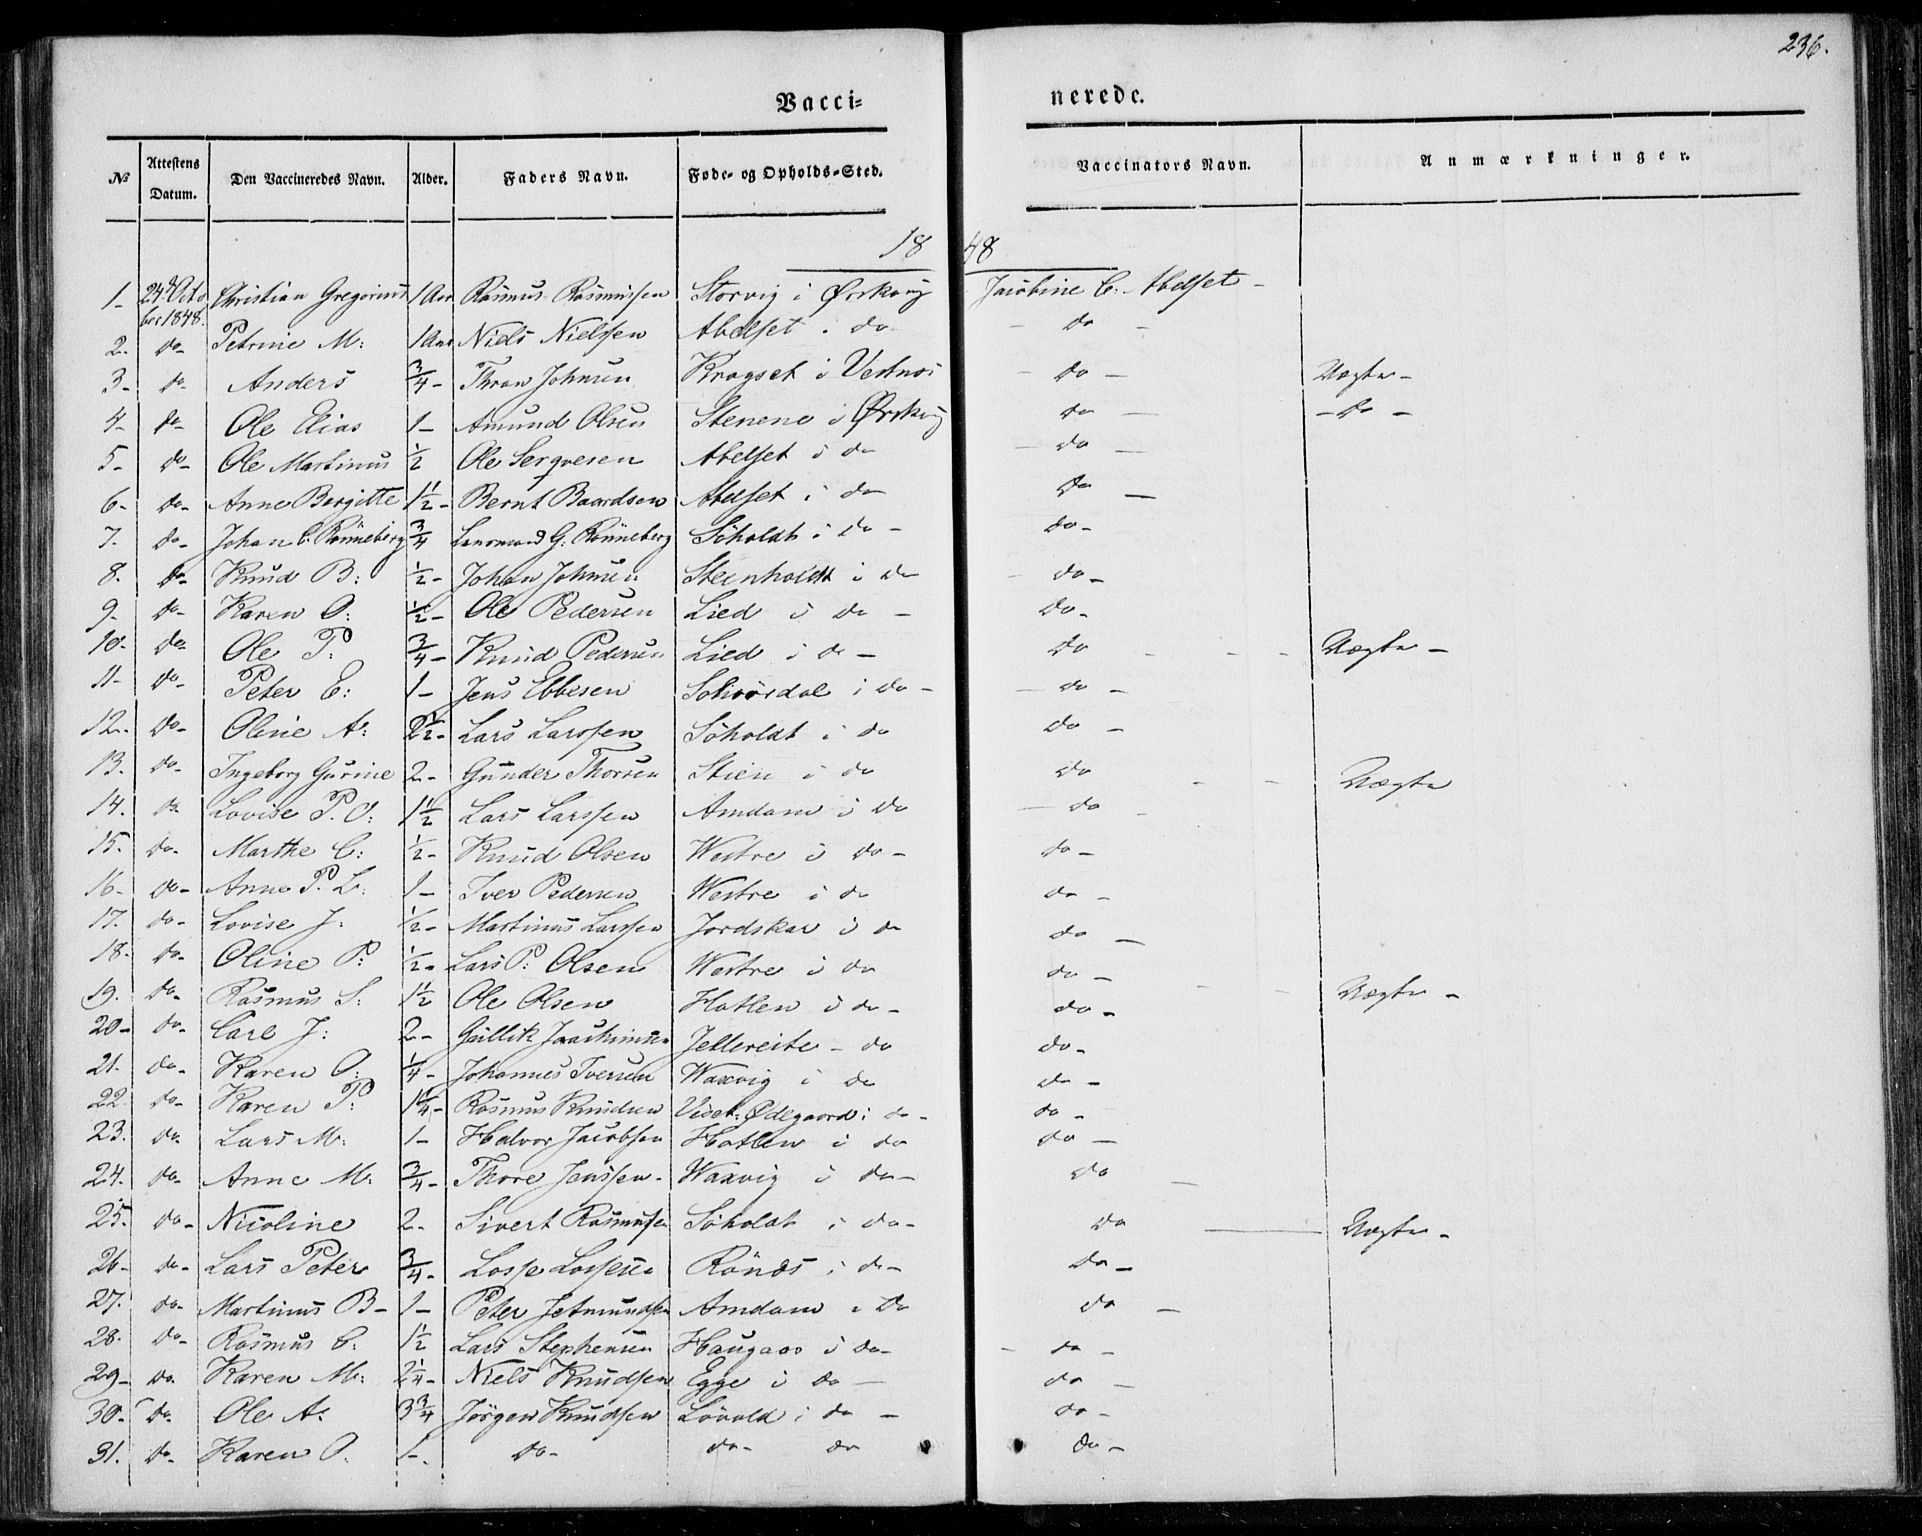 236.
Vacci- nerede.
No Attestens Datum. Den Vaccineredes Navn. Alder. Faders Navn. Føde- og Opholds-Sted. Vaccinators Navn. Anmærkninger.
18 48
1- 24de October 1848. Christian Gregorius 1 Aar Rasmus Rasmussen Storvig i Ørskoug Jacobine C. Abelset -
2. do- Petrine M: 1 Aar Niels Nielssen Abelset i do - do -
3- do- Anders 3/4- Johnsen Kragset i Vestnes - do - Uægte -
4- do- Ole Elias 1- Amund Olsen Stenene i Ørskoug do - - do -
5- do- Ole Martinus 1/2 Ole Abelset i do - do -
6- do- Anne Bergitte 1 1/2- Bernt Baardsen Abelset i do do -
7. do- Johan C. Rønneberg 3/4 Lensmand G: Rønneberg Søholdt i do - do-
8. do- Knud B: 1/2- Johan Johnsen Steinholdt i do - do-
9- do- Karen O: 1/2- Ole Pedersen Lied i do - do-
10- do- Ole P. 3/4- Knud Pedersen Lied i do - do - - - Uægte -
11- do- Peter E: 1- Jens Ebbesen i do - - do -
12- do- Oline A: 2 1/2- Lars Larssen Søholdt i do do -
13. do- Ingeborg Gurine 2- Gunder Thorsen Stien i do do - - Uægte
14. do. Lovise P. O: 1 1/2 Lars Larssen Amdam i do - do -
15. do- Marthe C: 1/2- Knud Olsen Westre i do - do -
16- do- Anne P. L: 1- Iver Pedersen Westre i do do -
17. do- Lovise J: 1/2- Martinus Larssen Jordskar i do do -
18- do- Oline P: 1/2- Lars P: Olsen Westre i do do -
19. do- Rasmus S: 1 1/2 Ole Olsen Hatlen i do - do - - - Uægte -
20- do- Carl J: 2- Gullik Joachimsen Jellereite - do do-
21. do- Karen O: 1/4- Johannes Iversen Waxvig i do do -
22 do- Karen P: 1 1/4- Rasmus Knudsen Ødegaard i do - do -
23. do- Lars M: 1- Halvor Jacobsen Hatlen i do do -
24. do- Anne M: 3/4- Thore Jenssen- Waxvig i do - do -
25. do- Nicoline 2- Sivert Rasmussen Søholdt i do- do - Uægte -
26- do- Lars Peter 3/4- Lasse Lassesen i do - do -
27. do- Martinus B- 1- Peter Jetmundsen Amdam i do do -
28. do- Rasmus C. 1 1/2 Lars Stephensen Haugaas i do - - do -
29- do- Karen M: 2 1/4- Niels Knudsen Egge i do - do -
30- do- Ole A. 3 3/4 Jørgen Knudsen Løvold i do - do -
31. do- Karen O. 1-. do- do- do do -